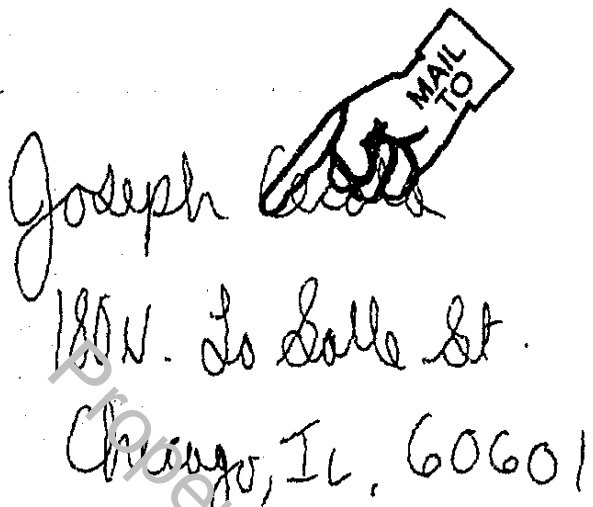 MAIL
TO
Joseph
180 N. La Salle St.
Chicago, IL, 60601
Proper